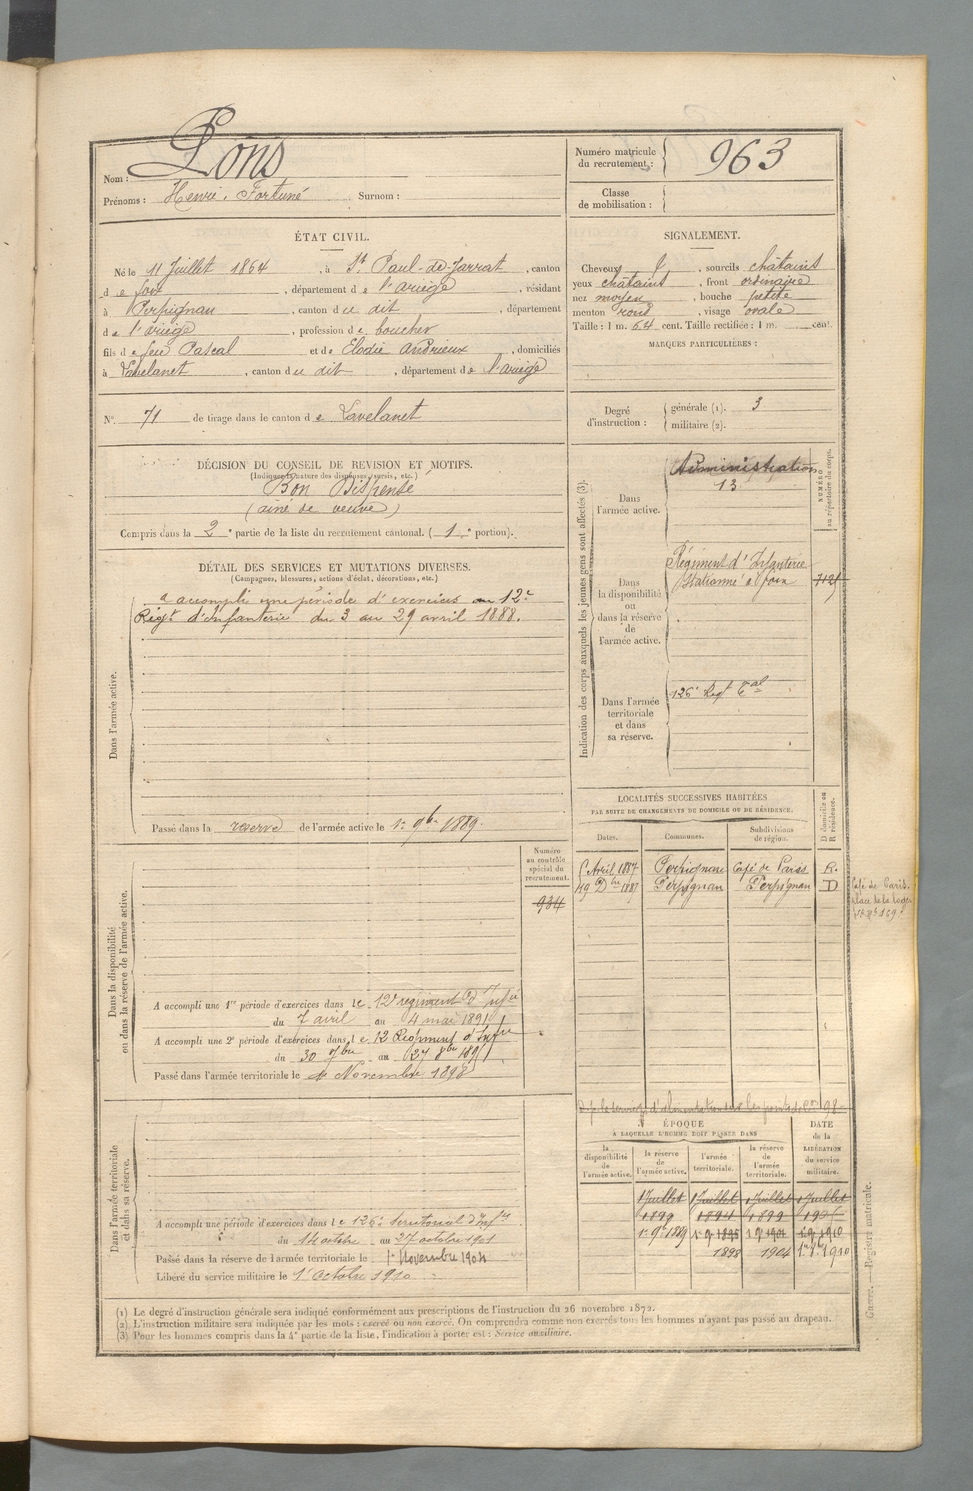 Nom : Pons
Prénoms : Henri, Fortuné Surnom :
Numéro matricule du recrutement : 963
Classe de mobilisation :
ÉTAT CIVIL.
Né le 11 Juillet 1864, à St Paul-de-Jarrat, canton
de foix, département de l'ariège, résidant
à Perpignan, canton du dit, département
de l'ariège, profession de boucher
fils de feu Pascal et de Elodie Andrieux, domiciliés
à Lavelanet, canton du dit, département de l'ariège
N° 71 de tirage dans le canton de Lavelanet
SIGNALEMENT.
Cheveux, sourcils châtains
yeux châtains, front ordinaire
nez moyen, bouche petite
menton rond, visage ovale
Taille : 1 m. 64 cent. Taille rectifiée : 1 m. cent.
MARQUES PARTICULIÈRES :
Degré d'instruction : générale (1). 3
militaire (2).
DÉCISION DU CONSEIL DE REVISION ET MOTIFS.
(Indiquer la nature des dispenses, sursis, etc.)
Bon Dispensé
(aîné de veuve)
Compris dans la 2e partie de la liste du recrutement cantonal. (1e portion).
DÉTAIL DES SERVICES ET MUTATIONS DIVERSES.
(Campagnes, blessures, actions d'éclat, décorations, etc.)
Dans l'armée active.
a accompli une période d'exercices au 12e
Régt d'Infanterie du 3 au 29 avril 1888.
Passé dans la réserve de l'armée active le 1er 9bre 1889.
Dans la disponibilité ou dans la réserve de l'armée active.
Numéro au contrôle spécial du recrutement.
934
A accompli une 1re période d'exercices dans le 12e régiment d'Infie
du 7 avril au 4 mai 1891
A accompli une 2e période d'exercices dans le 12 Régiment d'Infie
du 30 7bre au 27 8bre 189
Passé dans l'armée territoriale le 1er Novembre 1898
Dans l'armée territoriale et dans sa réserve.
A accompli une période d'exercices dans le 126e territorial d'Infie
du 14 octobre au 27 octobre 1901
Passé dans la réserve de l'armée territoriale le 1er Novembre 1904
Libéré du service militaire le 1er octobre 1910
Indication des corps auxquels les jeunes gens sont affectés (3).
NUMÉRO au répertoire du corps.
Dans l'armée active.
Administration
13
Dans la disponibilité ou dans la réserve de l'armée active.
Régiment d'Infanterie
stationné à Foix
Dans l'armée territoriale et dans sa réserve.
126e Regt Tal
LOCALITÉS SUCCESSIVES HABITÉES
PAR SUITE DE CHANGEMENTS DE DOMICILE OU DE RÉSIDENCE.
Dates. Communes. Subdivisions de région. D domicile ou R résidence.
Avril 1887 Perpignan Café de Paris R.
19 Dbre 1887 Perpignan Perpignan D
Café de Paris
place de la Loge
ÉPOQUE
À LAQUELLE L'HOMME DOIT PASSER DANS
DATE de la LIBÉRATION du service militaire.
la disponibilité de l'armée active. la réserve de l'armée active. l'armée territoriale. la réserve de l'armée territoriale.
1 Juillet 1 Juillet 1 Juillet 1 Juillet
1er 9bre 1889 1er 9 1895 1er 9 1901 1er 9 1910
1898 1904 1910
(1) Le degré d'instruction générale sera indiqué conformément aux prescriptions de l'instruction du 26 novembre 1872.
(2) L'instruction militaire sera indiquée par les mots : exercé ou non exercé. On comprendra comme non exercés tous les hommes n'ayant pas passé au drapeau.
(3) Pour les hommes compris dans la 4e partie de la liste, l'indication à porter est : Service auxiliaire.
Guerre. — Registre matricule.